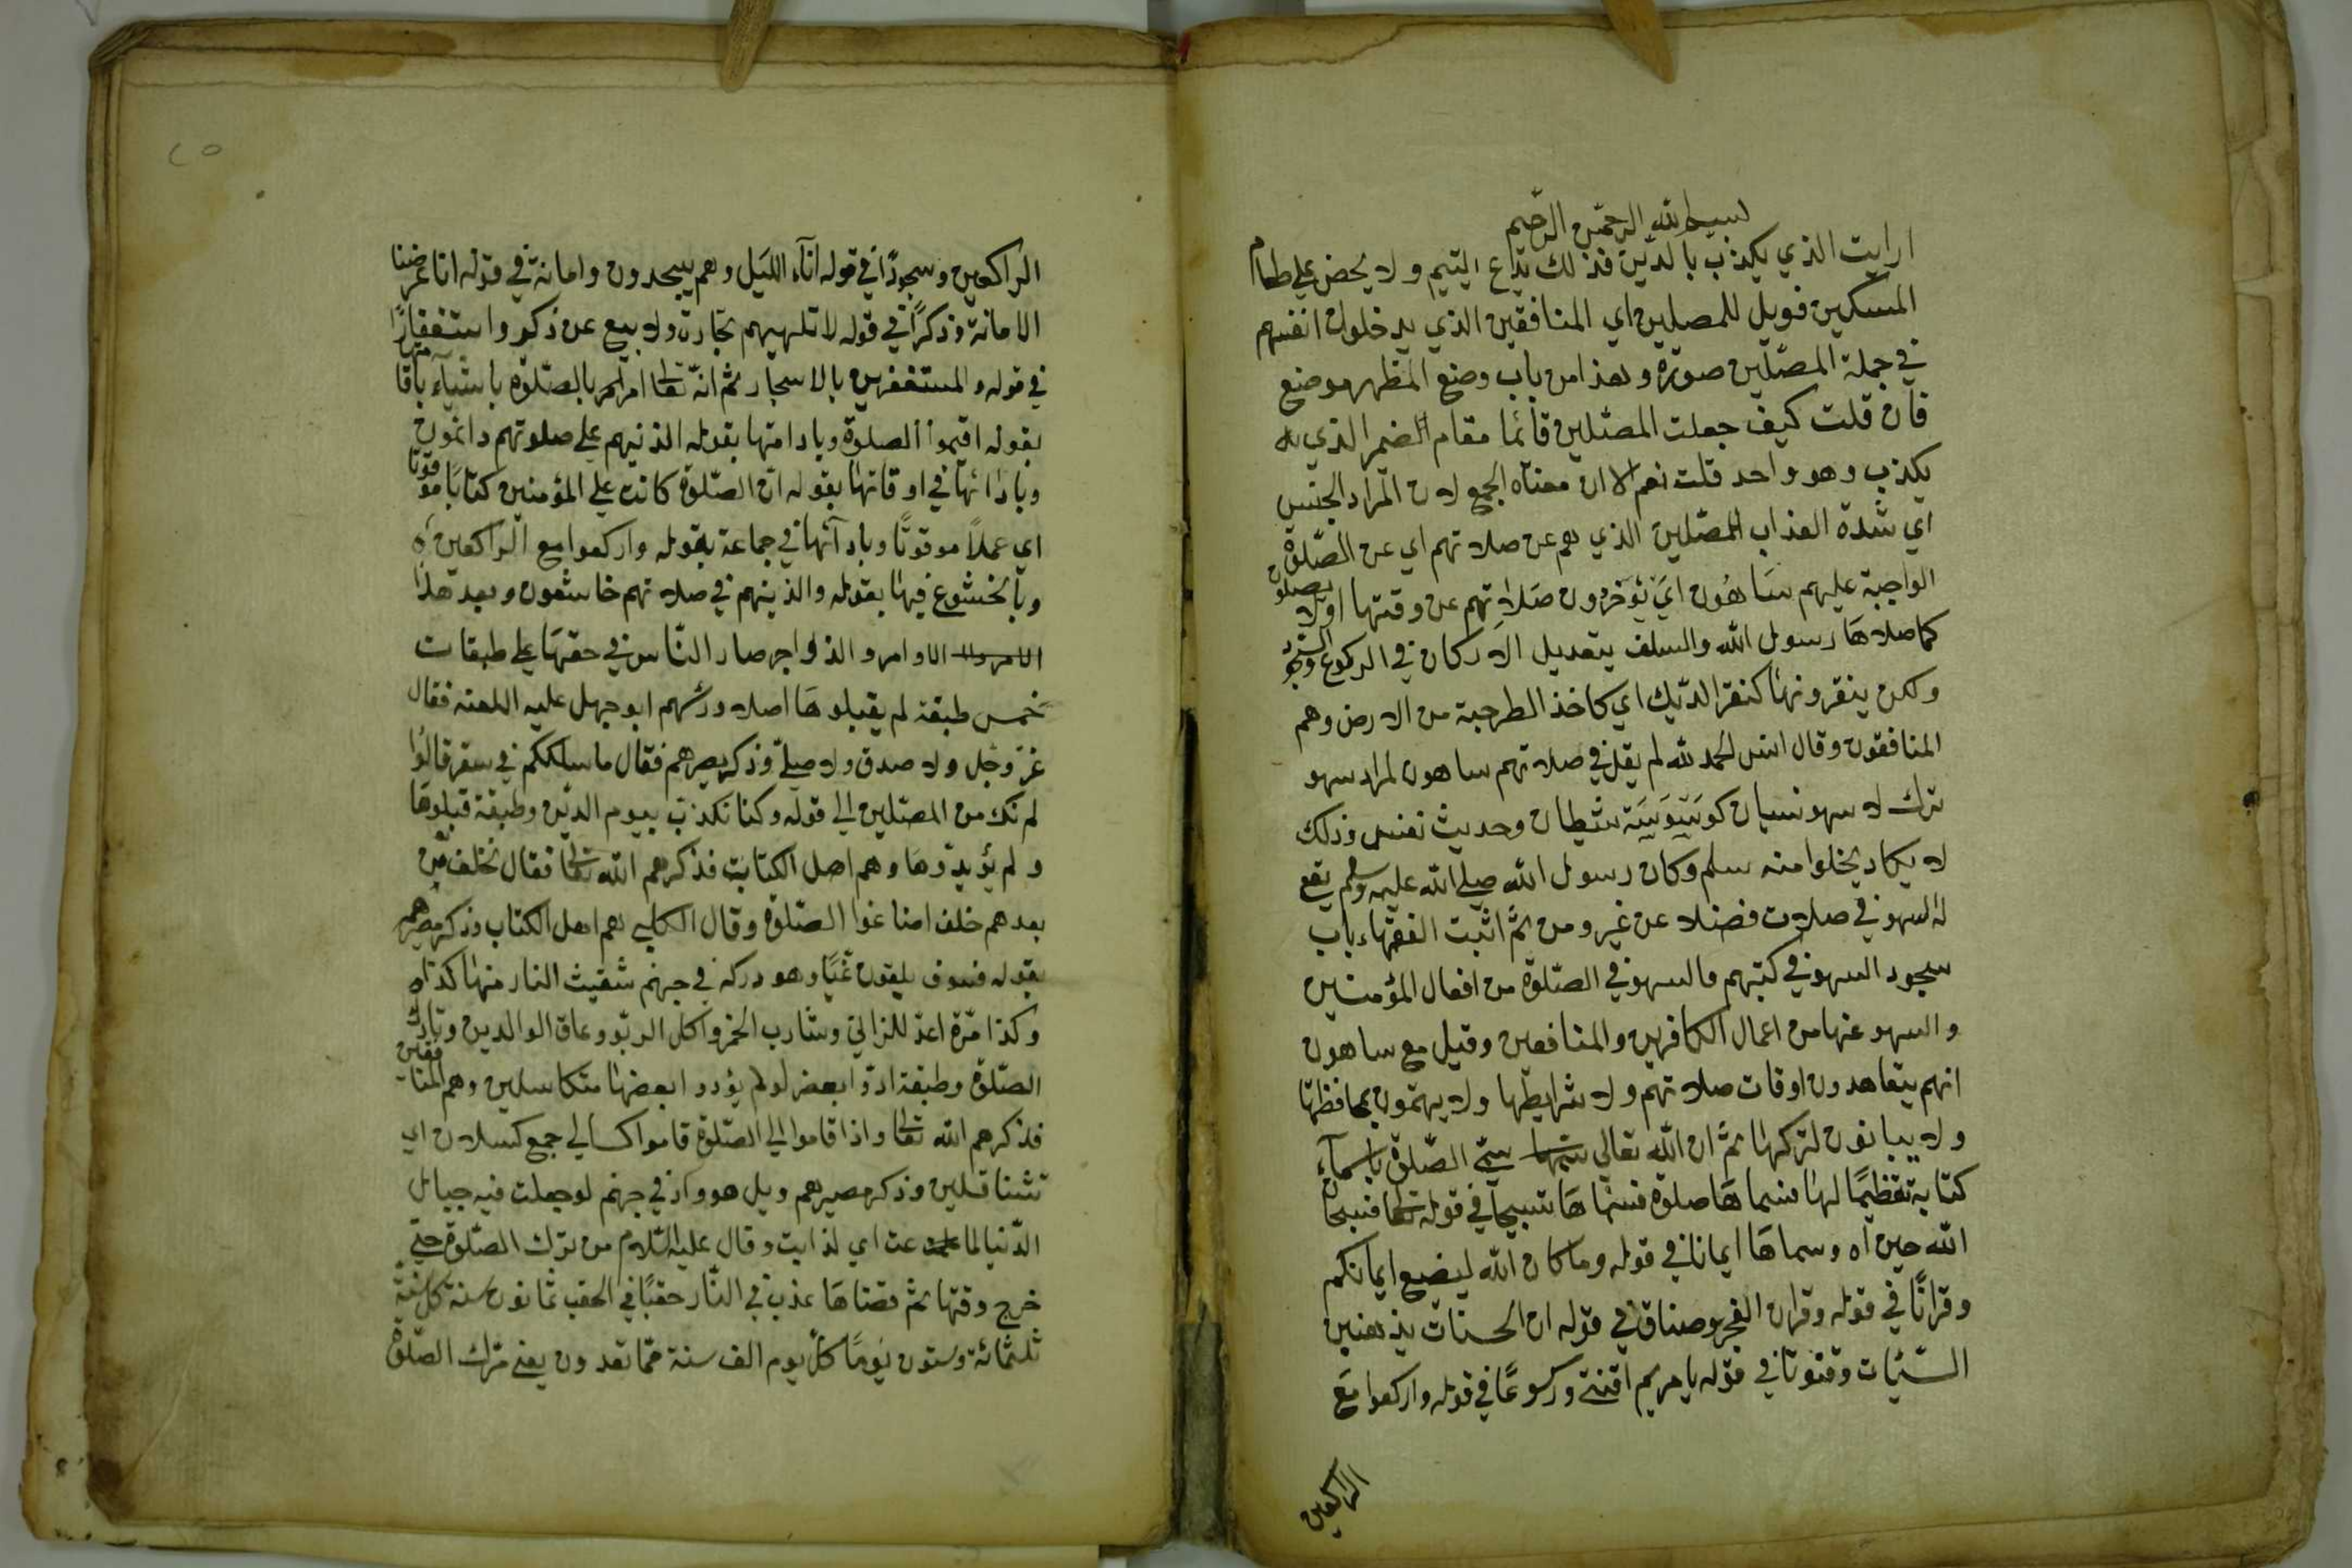 بسم الله الرحمن الرحيم
ارايت الذي يكذب بالدين فذلك يدع اليتيم ولا يحض علي طعام
المسكين فويل للمصلين اي المنافقين الذي يدخلون انفسهم
في جملة المصلين صورة وهذا من باب وضع المظهر موضع
فان قلت كيف جعلت المصلين قائما مقام الضمير الذي
يكذب وهو واحد قلت نعم الا ان معناه الجمع لان المراد الجنس
اي شدة العذاب للمصلين الذي هم عن صلاتهم اي عن الصلوة
الواجبة عليهم ساهون اي يؤخرون صلاتهم عن وقتها او لا يصلون
كما صلاها رسول الله والسلف بتعديل الاركان في الركوع والسجود
ولكن ينقرونها كنقر الديك اي كاخذ الطرحبة من الارض وهم
المنافقون وقال انس الحمد لله لم يقل في صلاتهم ساهون لمراد سهو
ترك لا سهو نسيان كوسوسة شيطان وحديث نفس وذلك
لا يكاد يخلوا منه سلم وكان رسول الله صلي الله عليه وسلم يقع
له السهو في صلات فضلا عن غير ومن ثم اثبت الفقهاء باب
سجود السهو في كتبهم فالسهو في الصلوة من افعال المؤمنين
والسهو عنها من اعمال الكافرين والمنافعين وقيل مع ساهون
انهم يتعاهدون اوقات صلاتهم ولا شرايطها ولا يهتمون بمحافظتها
ولا يبانون لتركها ثم ان الله تعالي سمي الصلوة باسماء
كتابه تعظيما لها فسماها صلوة فسماها تسبيحا في قوله تعا فسبحان
الله حين اه وسماها ايمانا في قوله وما كان الله ليضيع ايمانكم
وقرانا في قوله وقران الفجر وصناق في قوله ان الحسنات يذهبن
السيئات وقنوتا في قوله يا مريم اقنتي وركوعا في قوله واركعوا مع
الراكعين
الراكعين وسجودا في قوله اناء الليل وهم يسجدون وامانة في قوله انا عرضنا
الامانة وذكرا في قوله لا تلهيهم تجارة ولا بيع عن ذكر واستغفارا
في قوله والمستغفرين بالاسحار ثم انه تعا امرلمر بالصلوة باشياء باقا متها
بقوله اقيموا الصلوة وبادامتها بقوله الذينهم علي صلوتهم دائمون
وبادائها في اوقاتها بقوله ان الصلوة كانت علي المؤمنين كتابا موقوتا
اي عملا موقوتا وبادآئها في جماعة بقوله واركعوا مع الراكعين اه
وبالخشوع فيها بقوله والذينهم في صلاتهم خاشعون وبعد هذا
الاوامر والذواجر صار الناس في حقها علي طبقات
خمس طبقة لم يقبلوها اصلا ورئسهم ابو جهل عليه اللعنه فقال
عز وجل ولا صدق ولا صلي وذكر مصيرهم فقال ما سلككم في سقر قالوا
لم نك من المصلين الي قوله وكنا نكذب بيوم الدين وطبقة قبلوها
ولم يؤيدوها وهم اصل الكتابت فذكرهم الله تعا فقال فخلف من
بعدهم خلف اضاعوا الصلوة وقال الكلبي هم اهل الكتاب وذكر مصيرهم
بقوله فسوف يلقون غيا وهو دركه في جهنم شقيث النار منها كذا اه
وكذا مرة اعد للزاني وشارب الخمر واكل الربو وعاق الوالدين وتارك
الصلوة وطبقة ادوا بعض لو لم يؤدوا بعضها متكاسلين وهم المنافقين
فذكرهم الله تعا واذا قاموا الي الصلوة قاموا كسالي جمع كسلان اي
تثناقلين وذكر مصيرهم ويل هو واد في جهنم لو جعلت فيه جبال
الدنيا لماعت اي لذابت وقال عليه السلام من ترك الصلوة حتي
خرج وقتها ثم قضاها عذب في النار حقبا في الحقب ثمانون سنة كل سنة
ثلثمائة وستون يوما كل يوم الف سنة مما تعدون يعني ترك الصلوة